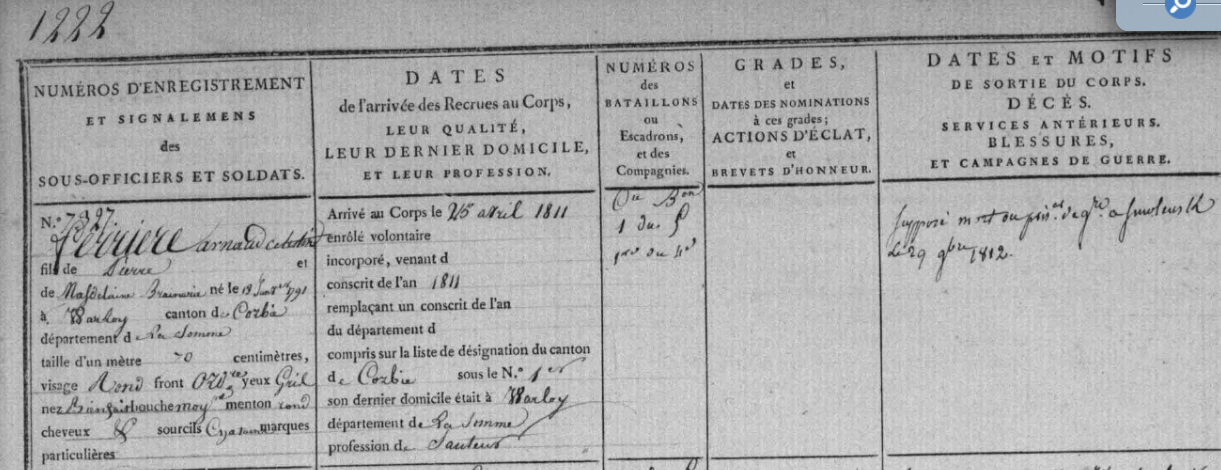 1222
NUMÉROS D'ENREGISTREMENT
ET SIGNALEMENS
des
SOUS-OFFICIERS ET SOLDATS.
DATES
de l'arrivée des Recrues au Corps,
LEUR QUALITÉ,
LEUR DERNIER DOMICILE,
ET LEUR PROFESSION.
NUMÉROS
des
BATAILLONS
ou
Escadrons,
et des
Compagnies.
GRADES,
et
DATES DES NOMINATIONS
à ces grades;
ACTIONS D'ÉCLAT,
et
BREVETS D'HONNEUR.
DATES ET MOTIFS
DE SORTIE DU CORPS.
DÉCÉS.
SERVICES ANTÉRIEURS.
BLESSURES,
ET CAMPAGNES DE GUERRE.
N.°
arnaud
fils de Pierre et
de né le 18
à Warloy canton de Corbie
département de La Somme
taille d'un mètre 70 centimètres,
visage Rond front Ord.re yeux Gris
nez bouche moy menton rond
cheveux & sourcils marques
particulières
Arrivé au Corps le 25 avril 1811
enrôlé volontaire
incorporé, venant d
conscrit de l'an 1811
remplaçant un conscrit de l'an
du département d
compris sur la liste de désignation du canton
de Corbie sous le N.° 1er
son dernier domicile était à Warloy
département de La Somme
profession de
1 du 5
1er du 4e
Supposé mort ou pris. de g.re a Smolensk
Le 29 9bre 1812.